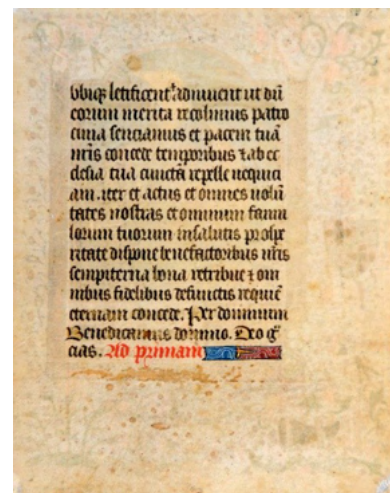 vbiqꝫ letificent ⁊ adiuuent ut dū
eorum merita recolimus patro
cinia senciamus et pacem tuā
nr̄is concede temporibus ⁊ ab ec
clesia tua cuncta repelle nequici
am. iter et actus et omnes volū
tates nostras et omnium famu
lorum tuorum in salutis prospe
ritate dispone benefactoribus nr̄is
sempiterna bona retribue ⁊ om
nibus fidelibus defunctis requiē
eternam concede. Per dominum
Benedicamus domino. Deo gr̄
cias. Ad primam